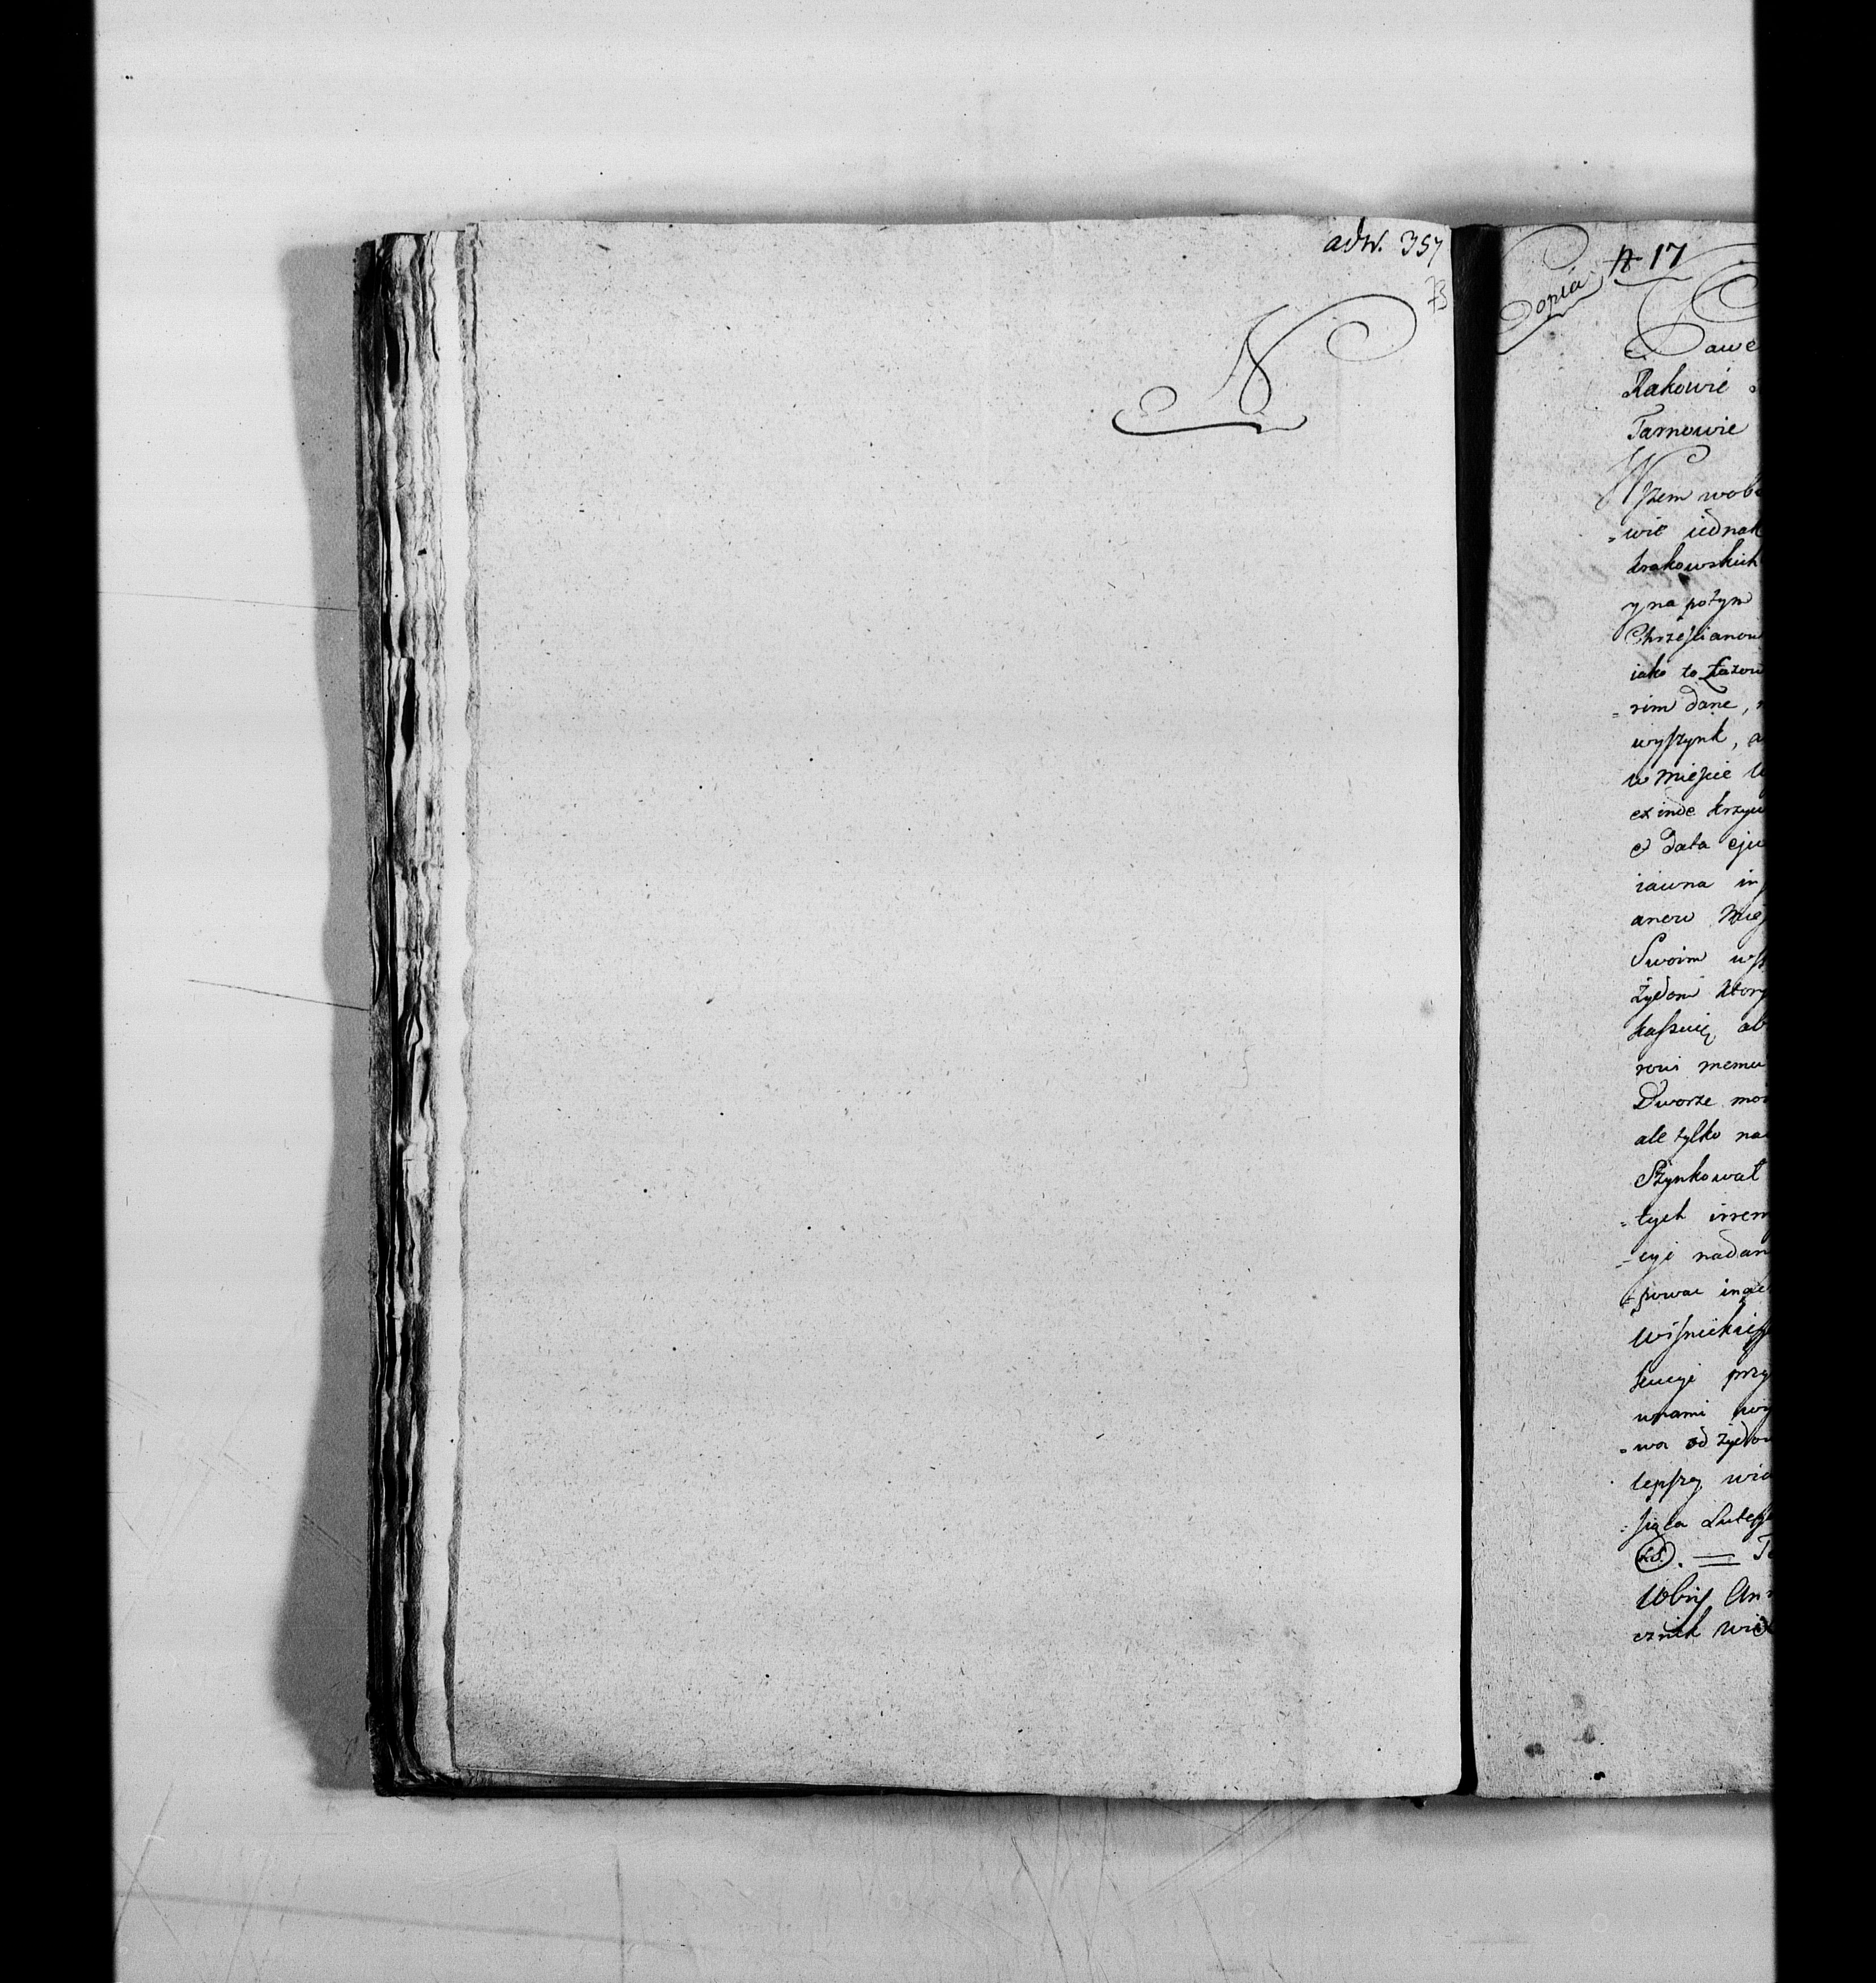 adw. 357
73
N
Copia
N 17
Pawe
Rakowie
Tarnowie
Wszem wobe
wie iednak
krakowskich
y na pożyw
Chrześcianow
iako to
rim dane,
wyszynk, a
w mieście W
ex inde krzyw
e data eju
iawna in
anow Miey
Swoim wsz
Żydom ktory
kaszuię, ab
rowi memu
Dworze moi
ale tylko na
Szynkował
tych irrem
cyi nadan
pować inac
kucyi przy
wnami
wa od żydow
lepszey wia
siąca Lutego
L.S. = To
Ann
cznik Wie